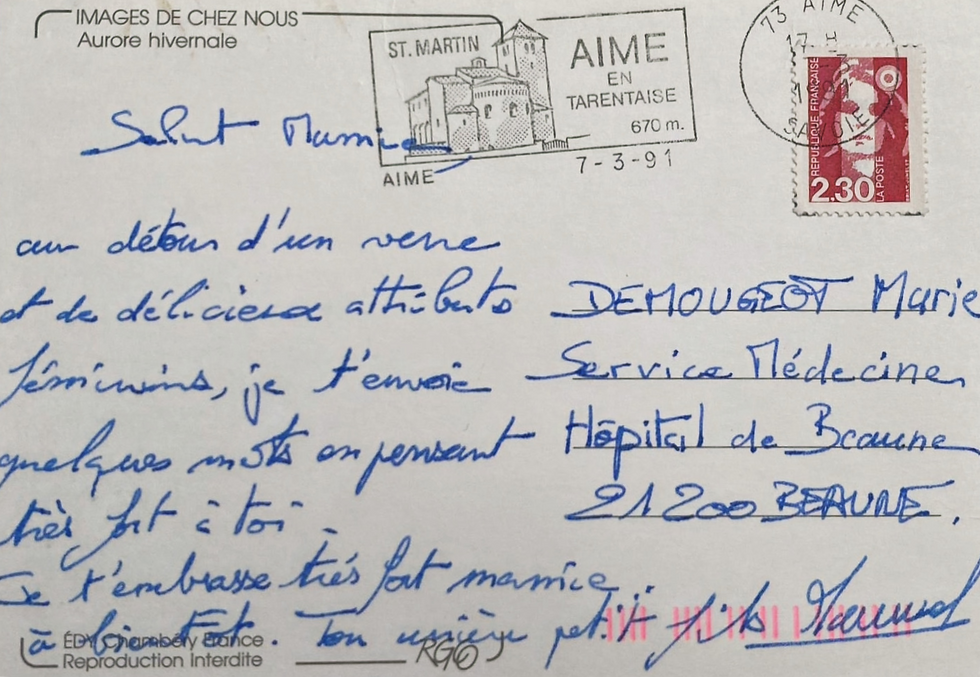 IMAGES DE CHEZ NOUS
Aurore hivernale
ST. MARTIN
AIME
EN
TARENTAISE
670 m.
AIME
7-3-91
73 AIME
17 H
SAVOIE
RÉPUBLIQUE FRANÇAISE
2.30
LA POSTE
Salut Mamie
au détour d'un verre
et de délicieux attributs
féminins, je t'envoie
quelques mots en pensant
très fort à toi.
Je t'embrasse très fort mamie.
à bientôt. Ton petit fils
DEMOUGEOT Marie
Service Médecine
Hôpital de Beaune
21200 BEAUNE.
ÉDY Chambéry France
Reproduction Interdite